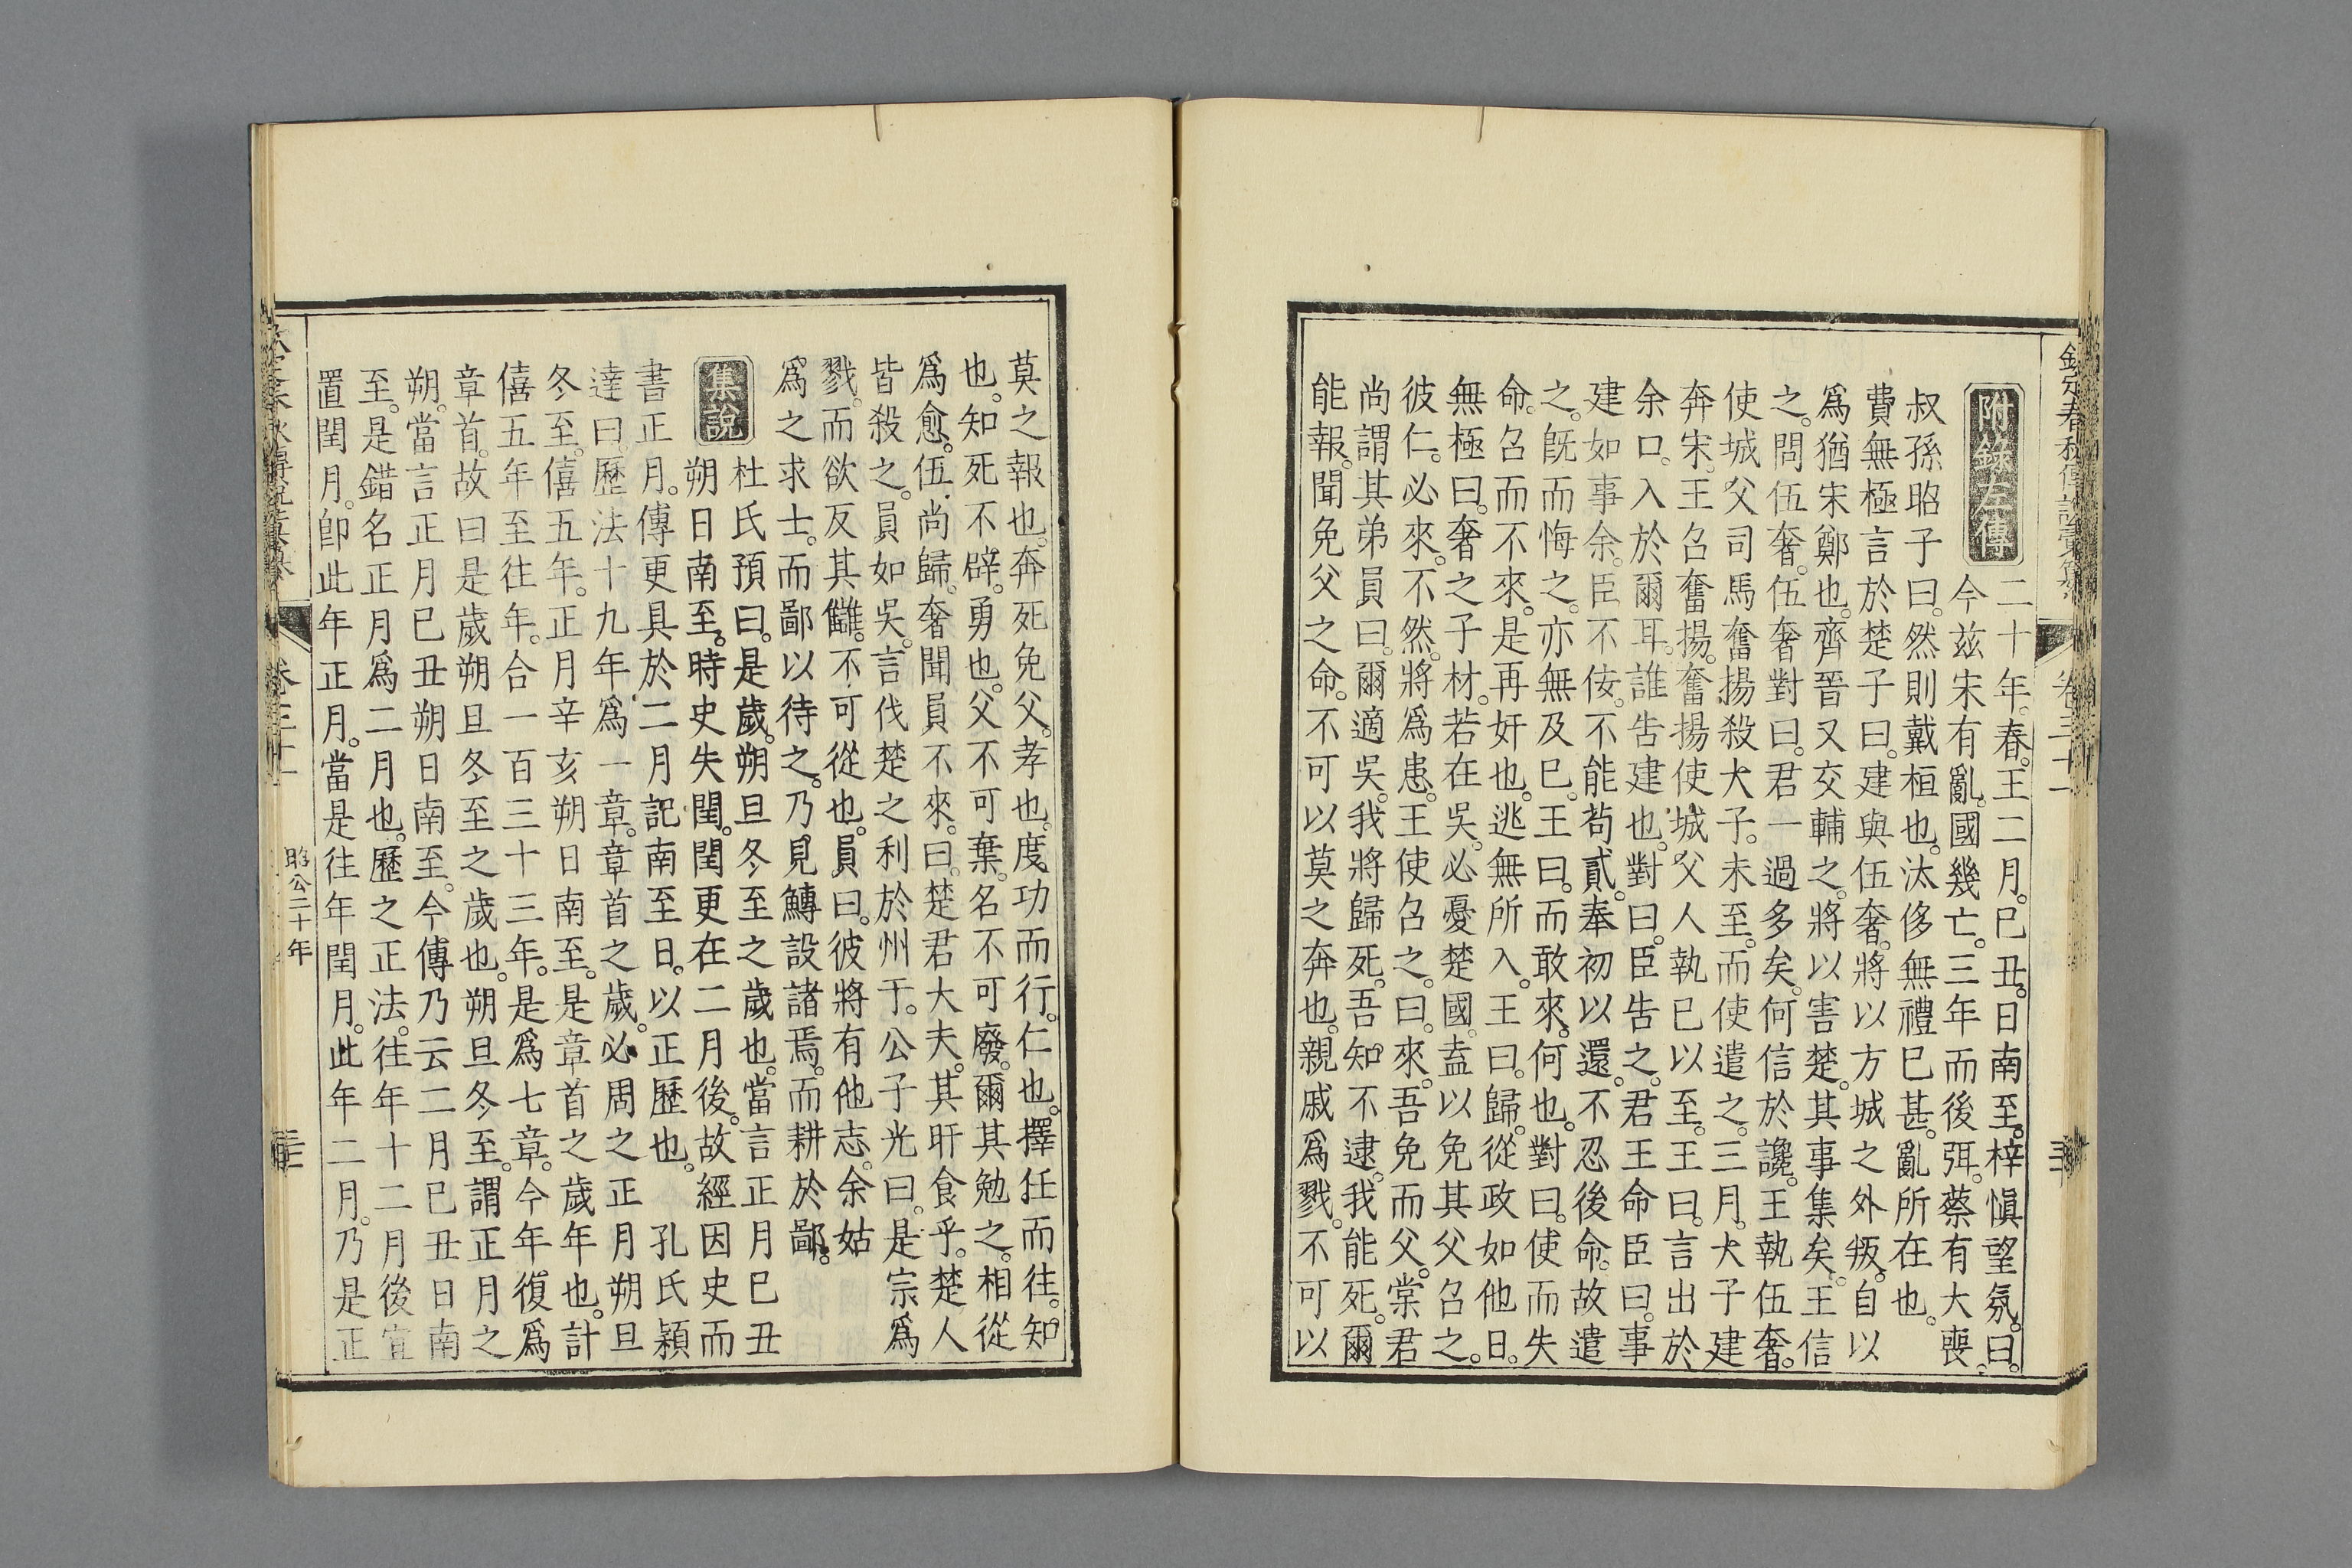 欽定春秋傳說彙纂
卷三十一
附錄左傳
二十年。春。王二月。巳丑。日南至。梓愼望氛。曰。
今兹宋有亂。國幾亡。三年而後弭。蔡有大喪。
叔孫昭子曰。然則戴桓也。汰侈無禮巳甚。亂所在也。
費無極言於楚子曰。建與伍奢。將以方城之外叛。自以
爲猶宋鄭也。齊晉又交輔之。將以害楚。其事集矣。王信
之。問伍奢。伍奢對曰。君一過多矣。何信於讒。王執伍奢。
使城父司馬奮揚殺大子。未至。而使遣之。三月。大子建
奔宋。王召奮揚。奮揚使城父人執巳以至。王曰。言出於
余口。入於爾耳。誰告建也。對曰。臣告之。君王命臣曰。事
建如事余。臣不佞。不能苟貳。奉初以還。不忍後命。故遣
之。旣而悔之。亦無及巳。王曰。而敢來。何也。對曰。使而失
命。召而不來。是再奸也。逃無所入。王曰。歸。從政如他日。
無極曰。奢之子材。若在吳。必憂楚國。盍以免其父召之。
彼仁。必來。不然。將爲患。王使召之。曰。來。吾免而父。棠君
尚謂其弟員曰。爾適吳。我將歸死。吾知不逮。我能死。爾
能報。聞免父之命。不可以莫之奔也。親戚爲戮。不可以
莫之報也。奔死免父。孝也。度功而行。仁也。擇任而往。知
也。知死不辟。勇也。父不可棄。名不可廢。爾其勉之。相從
爲愈。伍尚歸。奢聞員不來。曰。楚君大夫。其旰食乎。楚人
皆殺之。員如吳。言伐楚之利於州于。公子光曰。是宗爲
戮。而欲反其讎。不可從也。員曰。彼將有他志。余姑
爲之求士。而鄙以待之。乃見鱄設諸焉。而耕於鄙。
集說
杜氏預曰。是歲。朔旦冬至之歲也。當言正月巳丑
朔日南至。時史失閏。閏更在二月後。故經因史而
書正月。傳更具於二月記南至日。以正歷也。 孔氏穎
達曰。歷法十九年爲一章。章首之歲。必周之正月朔旦
冬至。僖五年。正月辛亥朔日南至。是章首之歲年也。計
僖五年至往年。合一百三十三年。是爲七章。今年復爲
章首。故曰是歲朔旦冬至之歲也。朔旦冬至。謂正月之
朔。當言正月巳丑朔日南至。今傳乃云二月巳丑日南
至。是錯名正月爲二月也。歷之正法。往年十二月後宜
置閏月。卽此年正月。當是往年閏月。此年二月。乃是正
卷三十一
昭公二十年